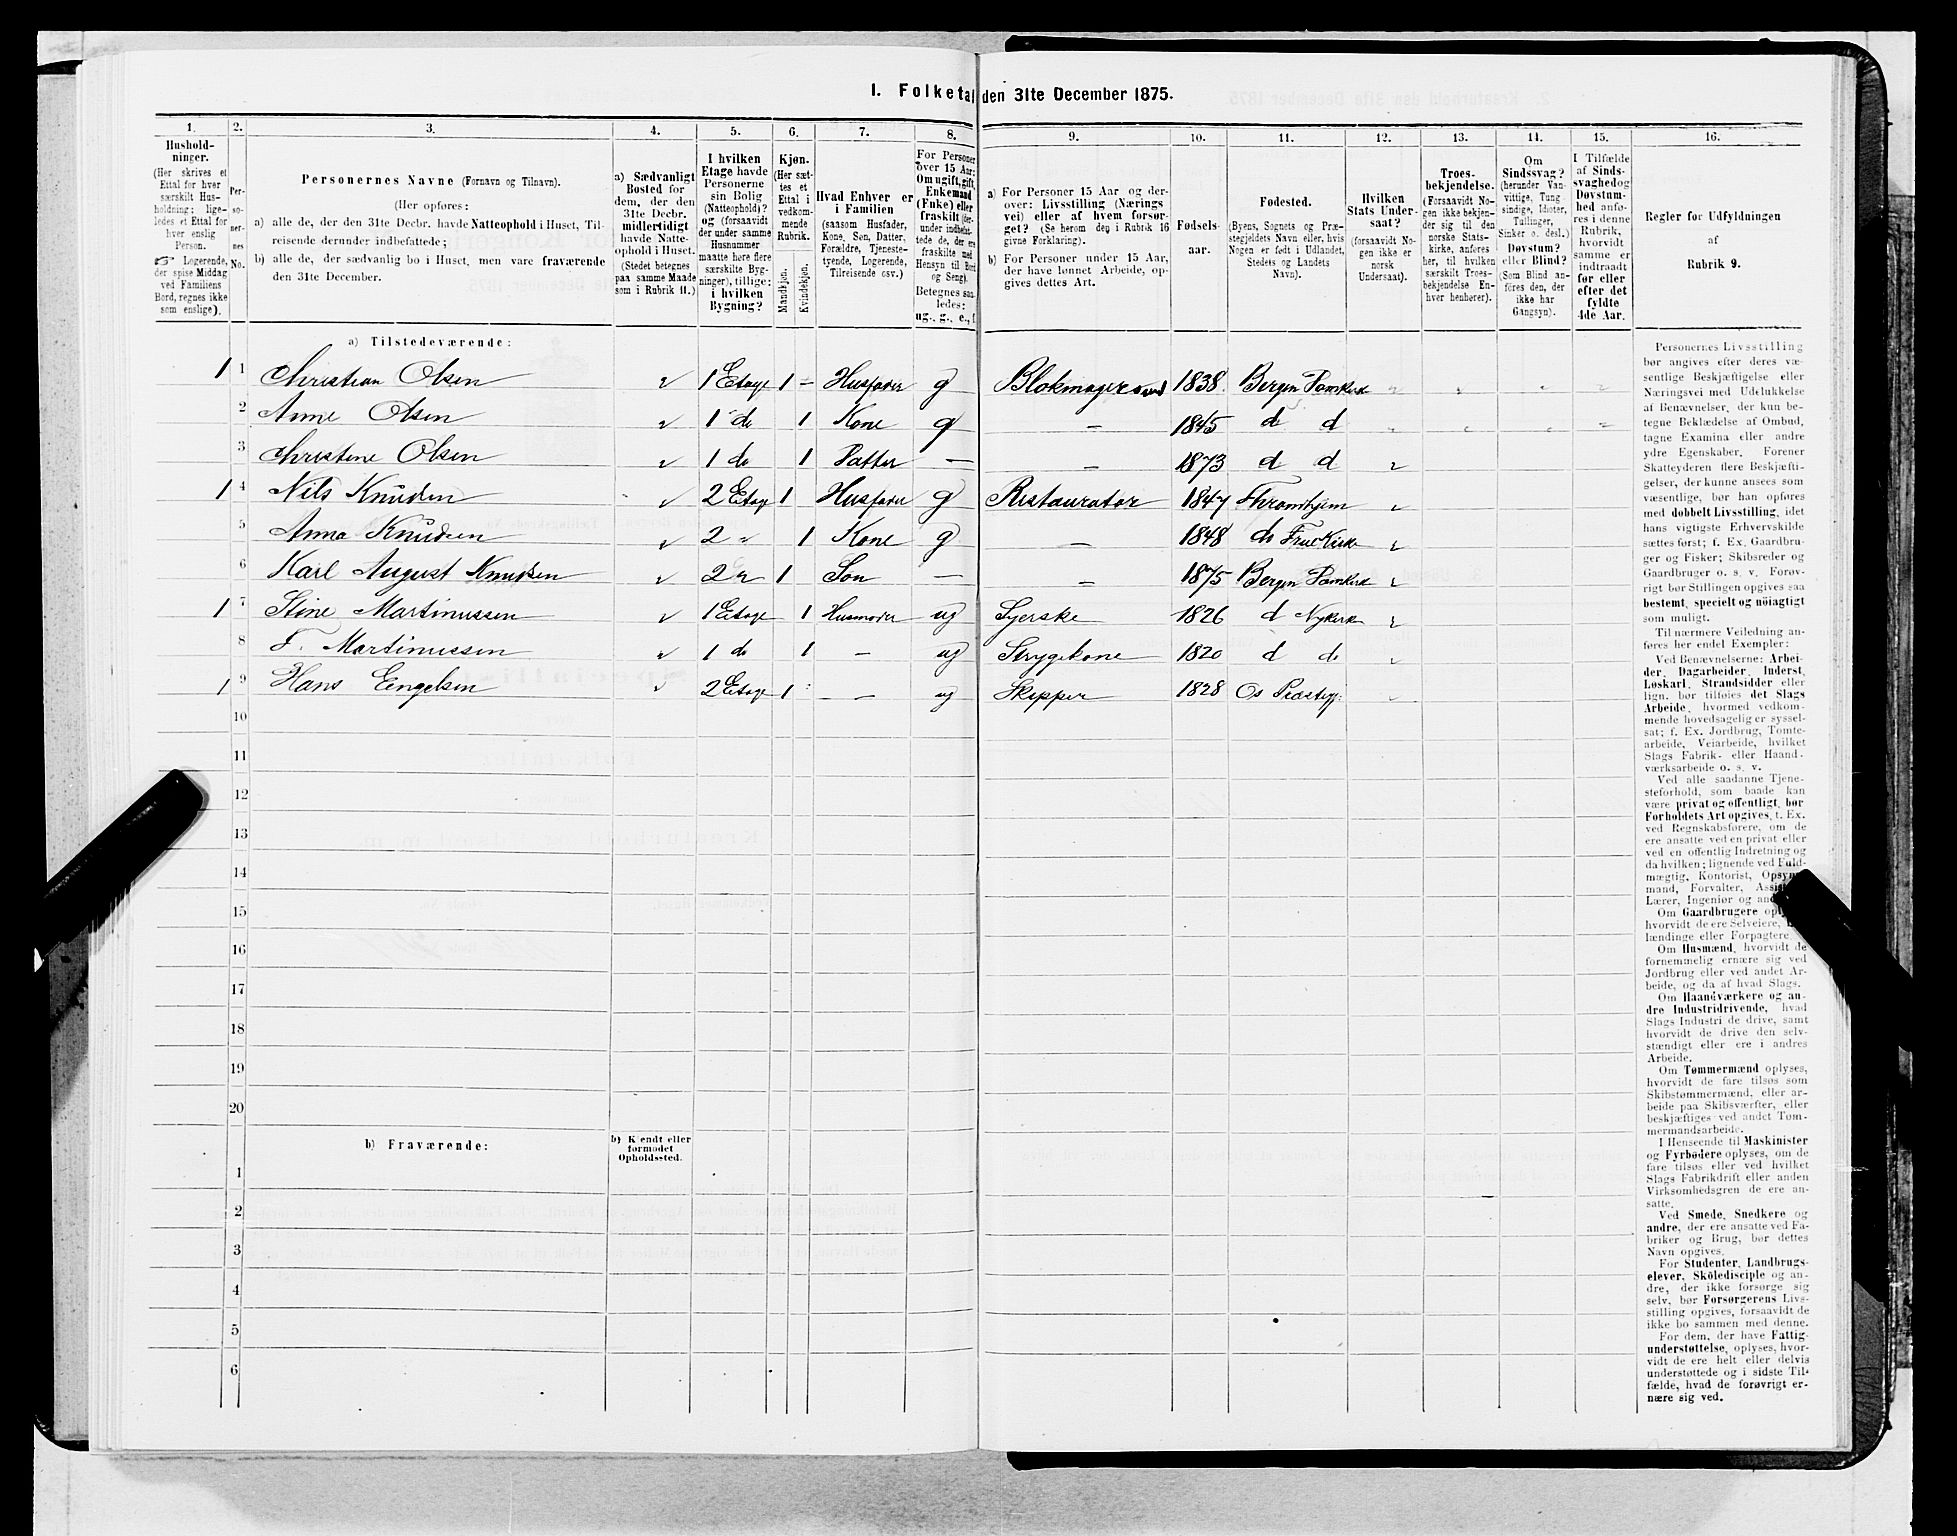 I. Folketal den 31te December 1875.
1. 2. 3. 4. 5. 6. 7. 8. 9. 10. 11. 12. 13. 14. 15. 16.
Husholdninger.
(Her skrives et Ettal for hver særskilt Husholdning; ligeledes et Ettal for hver enslig Person.
☞ Logerende, der spise Middag ved Familiens Bord, regnes ikke som enslige).
Personernes No.
Personernes Navne (Fornavn og Tilnavn).
(Her opføres:
a) alle de, der den 31te Decbr. havde Natteophold i Huset, Tilreisende derunder indbefattede;
b) alle de, der sædvanlig bo i Huset, men vare fraværende den 31te December.
a) Sædvanligt Bosted for dem, der den 31te Decbr. midlertidigt havde Natteophold i Huset.
(Stedet betegnes paa samme Maade som i Rubrik 11.)
I hvilken Etage havde Personerne sin Bolig (Natteophold)? og (forsaavidt der under samme Husnummer maatte høre flere særskilte Bygninger), tillige: i hvilken Bygning?
Kjøn.
(Her sættes et Ettal i vedkommende Rubrik.
Mandkjøn.
Kvindekjøn.
Hvad Enhver er i Familien
(saasom Husfader, Kone, Søn, Datter, Forældre, Tjenestetyende, Logerende, Tilreisende osv.)
For Personer over 15 Aar: Om ugift, gift, Enkemand (Enke) eller fraskilt (derunder indbefattede de, der ere fraskilte med Hensyn til Bord og Seng).
Betegnes saaledes:
ug., g., e., f.
a) For Personer 15 Aar og derover: Livsstilling (Næringsvei) eller af hvem forsørget? (Se herom den i Rubrik 16 givne Forklaring).
b) For Personer under 15 Aar, der have lønnet Arbeide, opgives dettes Art.
Fødselsaar.
Fødested.
(Byens, Sognets og Præstegjeldets Navn eller, hvis Nogen er født i Udlandet, Stedets og Landets Navn).
Hvilken Stats Undersaat?
(forsaavidt Nogen ikke er norsk Undersaat).
Troesbekjendelse.
(Forsaavidt Nogen ikke bekjender sig til den norske Statskirke, anføres her, til hvilken særskilt Troesbekjendelse Enhver henhører).
Om Sindssvag?
(herunder Vanvittige, Tungsindige, Idioter, Tullinger, Sinker o. desl.)
Døvstum?
eller Blind?
(Som Blind anføres den, der ikke har Gangsyn).
I Tilfælde af Sindssvaghed og Døvstumhed anføres i denne Rubrik, hvorvidt samme er indtraadt før eller efter det fyldte 4de Aar.
Regler for Udfyldningen
af
Rubrik 9.
a) Tilstedeværende:
1 1 Christian Olsen 1 Etage 1 - Husfader g Blokmagersvend 1838. Bergen Domkirk
2 Anne Olsen 1 do 1 Kone g - 1845 d d
3 Christine Olsen 1 do 1 Datter - - 1873 d d
1 4 Nils Knudsen 2 Etage 1 Husfader g Restauratør 1847 Thromhjem
5 Anna Knudsen 2 " 1 Kone g - 1848 do Frue Kirke
6 Karl August Knudsen 2 " 1 Søn - - 1875 Bergen Domkirk
1 7 Stine Martinussen 1 Etage 1 Husmoder ug Syerske 1826 d Nykirk
8 F. Martinussen 1 do 1 - ug Strygekone 1820 d do
1 9 Hans Engelsen 2 Etage 1 - ug Skipper 1828 Os Præstegj:
10
11
12
13
14
15
16
17
18
19
20
b) Fraværende:
b) Kjendt eller formodet Opholdssted.
1
2
3
4
5
6
Personernes Livsstilling
bør angives efter deres væ-
sentlige Beskjæftigelse eller
Næringsvei med Udelukkelse
af Benævnelser, der kun be-
tegne Beklædelse af Ombud,
tagne Examina eller andre
ydre Egenskaber. Forener
Skatteyderen flere Beskjæfti-
gelser, der kunne ansees som
væsentlige, bør han opføres
med dobbelt Livsstilling, idet
hans vigtigste Erhvervskilde
sættes først; f. Ex. Gaardbru-
ger og Fisker; Skibsreder og
Gaardbruger o. s. v. Forøv-
rigt bør Stillingen opgives saa
bestemt, specielt og nöiagtigt
som muligt.
Til nærmere Veiledning an-
føres her endel Exempler:
Ved Benævnelserne: Arbei-
der, Dagarbeider, Inderst,
Løskarl, Strandsidder eller
lign. bør tilføies det Slags
Arbeide, hvormed vedkom-
mende hovedsagelig er syssel-
sat; f. Ex. Jordbrug, Tomte-
arbeide, Veiarbeide, hvilket
Slags Fabrik- eller Haand-
værksarbeide o. s. v.
Ved alle saadanne Tjene-
steforhold, som baade kan
være privat og offentligt, bør
Forholdets Art opgives, t. Ex.
ved Regnskabsførere, om de
ere ansatte ved en privat eller
ved en offentlig Indretning og
da hvilken; lignende ved Fuld-
mægtig, Kontorist, Opsyns-
mand, Forvalter,
Lærer, Ingeniør og
Om Gaardbrugere
hvorvidt de ere Selveiere,
lændinge eller Forpagtere.
Om Husmænd, hvorvidt de
fornemmelig ernære sig ved
Jordbrug eller ved andet Ar-
beide, og da af hvad Slags.
Om Haandværkere og an-
dre Industridrivende, hvad
Slags Industri de drive, samt
hvorvidt de drive den selv-
stændigt eller ere i andres
Arbeide.
Om Tømmermænd oplyses,
hvorvidt de fare tilsøs som
Skibstømmermænd, eller ar-
beide paa Skibsværfter, eller
beskjæftiges ved andet Tøm-
mermandsarbeide.
I Henseende til Maskinister
og Fyrbødere oplyses, om de
fare tilsøs eller ved hvilket
Slags Fabrikdrift eller anden
Virksomhedsgren de ere an-
satte.
Ved Smede, Snedkere og
andre, der ere ansatte ved Fa-
briker og Brug, bør dettes
Navn opgives.
For Studenter, Landbrugs-
elever, Skoledisciple og an-
dre, der ikke forsørge sig
selv, bør Forsørgerens Livs-
stilling opgives, forsaavidt de
ikke bo sammen med denne.
For dem, der have Fattig-
understøttelse, oplyses, hvor-
vidt de ere helt eller delvis
understøttede og i sidste Til-
fælde, hvad de forøvrigt er-
nære sig ved.